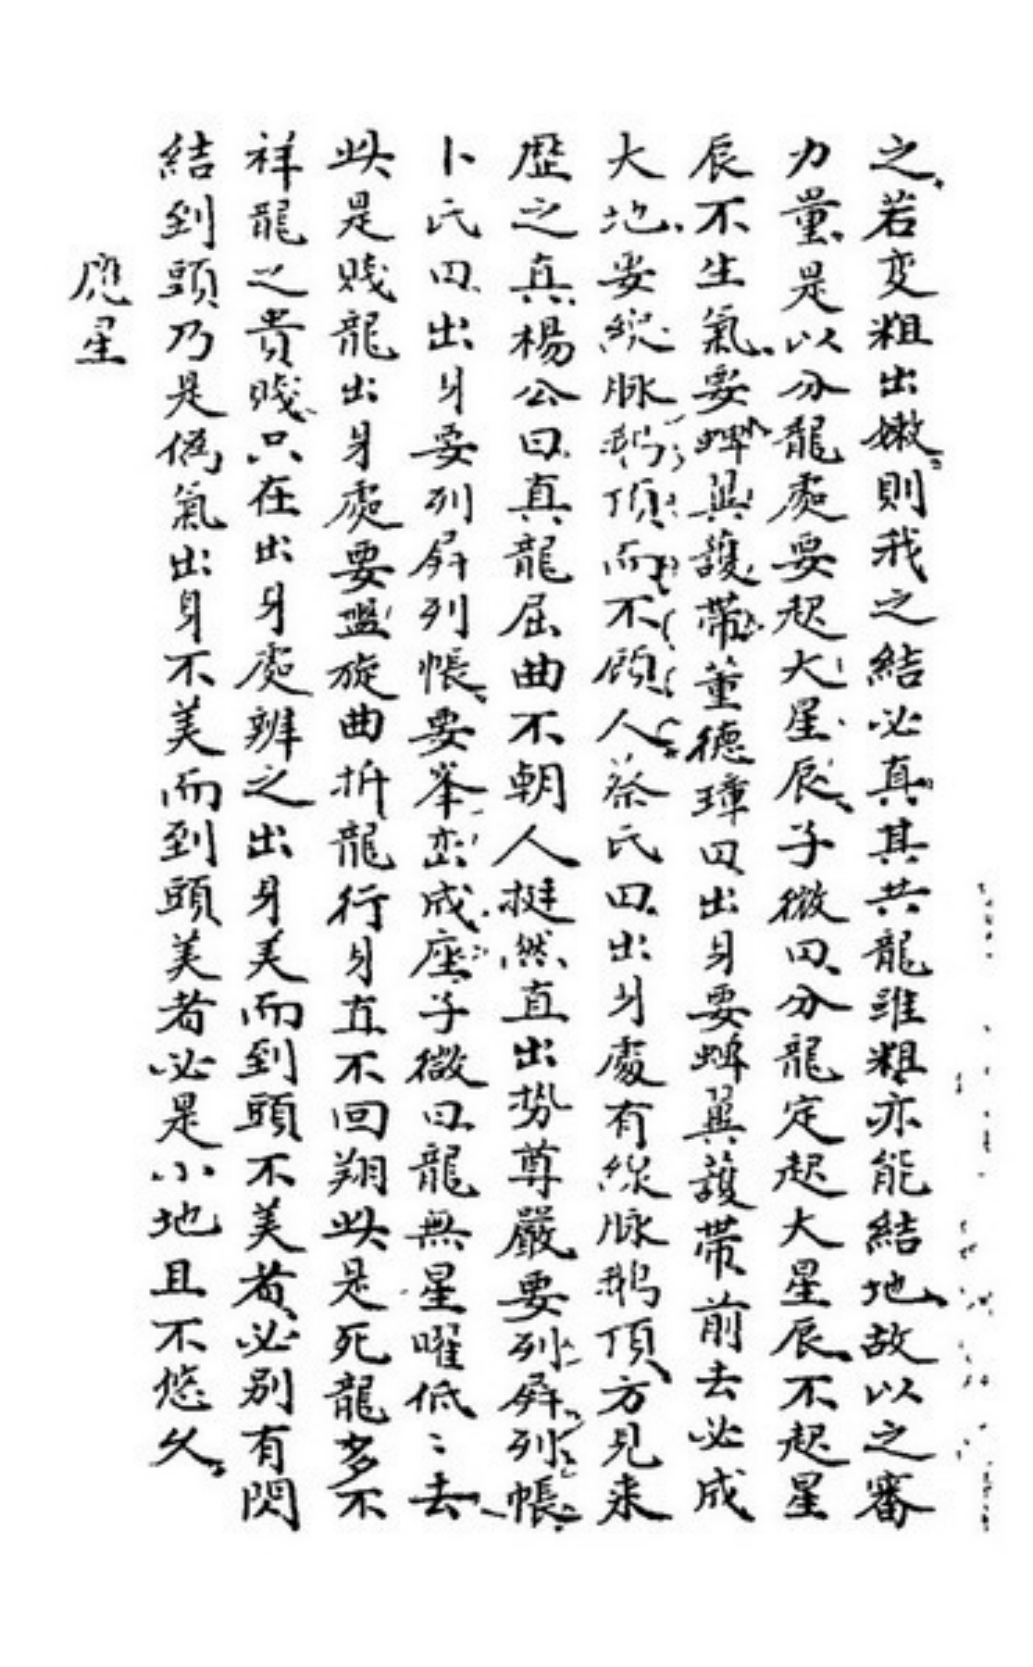 之若变粗出嫩則我之結必真其共龍雖粗亦能結地故以之審
力量是以分龍處要起大星辰子微曰分龍定起大星辰不起星
辰不生氣要蟬異護帶董德璋曰出身要蟬翼護帶前去必成
大地要線脉鹅頂而不顾人蔡氏曰出身處有線脉鵝頂方見来
歷之真楊公曰真龍屈曲不朝人挺然直出势尊嚴要列屏列帳
卜氏曰出身要列屏列帳要峯峦成座子微曰龍無星曜低〻去
此是贱龍出身處要盤旋曲折龍行身直不回翔此是死龍多不
祥龍之貴贱只在出身處辨之出身美而到頭不美者必别有閃
結到頭乃是偽氣出身不美而到頭美者必是小地且不悠久
應星